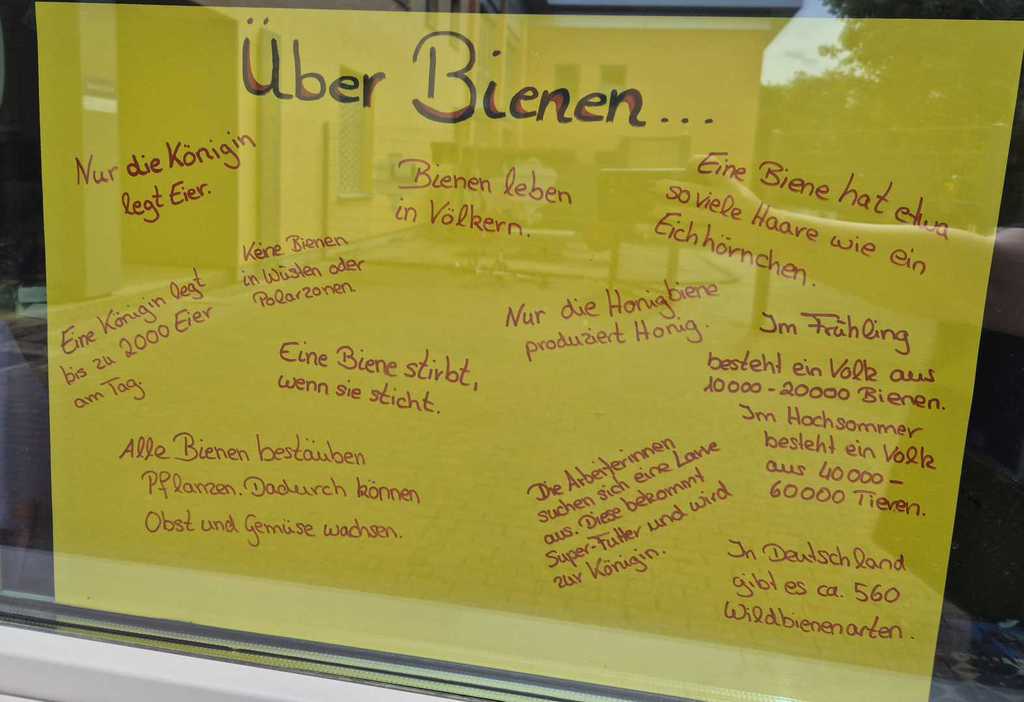 Über Bienen...
Nur die Königin
legt Eier.
Bienen leben
in Völkern.
Eine Biene hat etwa
so viele Haare wie ein
Eichhörnchen.
Keine Bienen
in Wüsten oder
Polarzonen
Eine Königin legt
bis zu 2000 Eier
am Tag.
Nur die Honigbiene
produziert Honig.
Im Frühling
besteht ein Volk aus
10000-20000 Bienen.
Im Hochsommer
besteht ein Volk
aus 40000-
60000 Tieren.
Eine Biene stirbt,
wenn sie sticht.
Alle Bienen bestäuben
Pflanzen. Dadurch können
Obst und Gemüse wachsen.
Die Arbeiterinnen
suchen sich eine Larve
aus. Diese bekommt
Super-Futter und wird
zur Königin.
In Deutschland
gibt es ca. 560
Wildbienenarten.